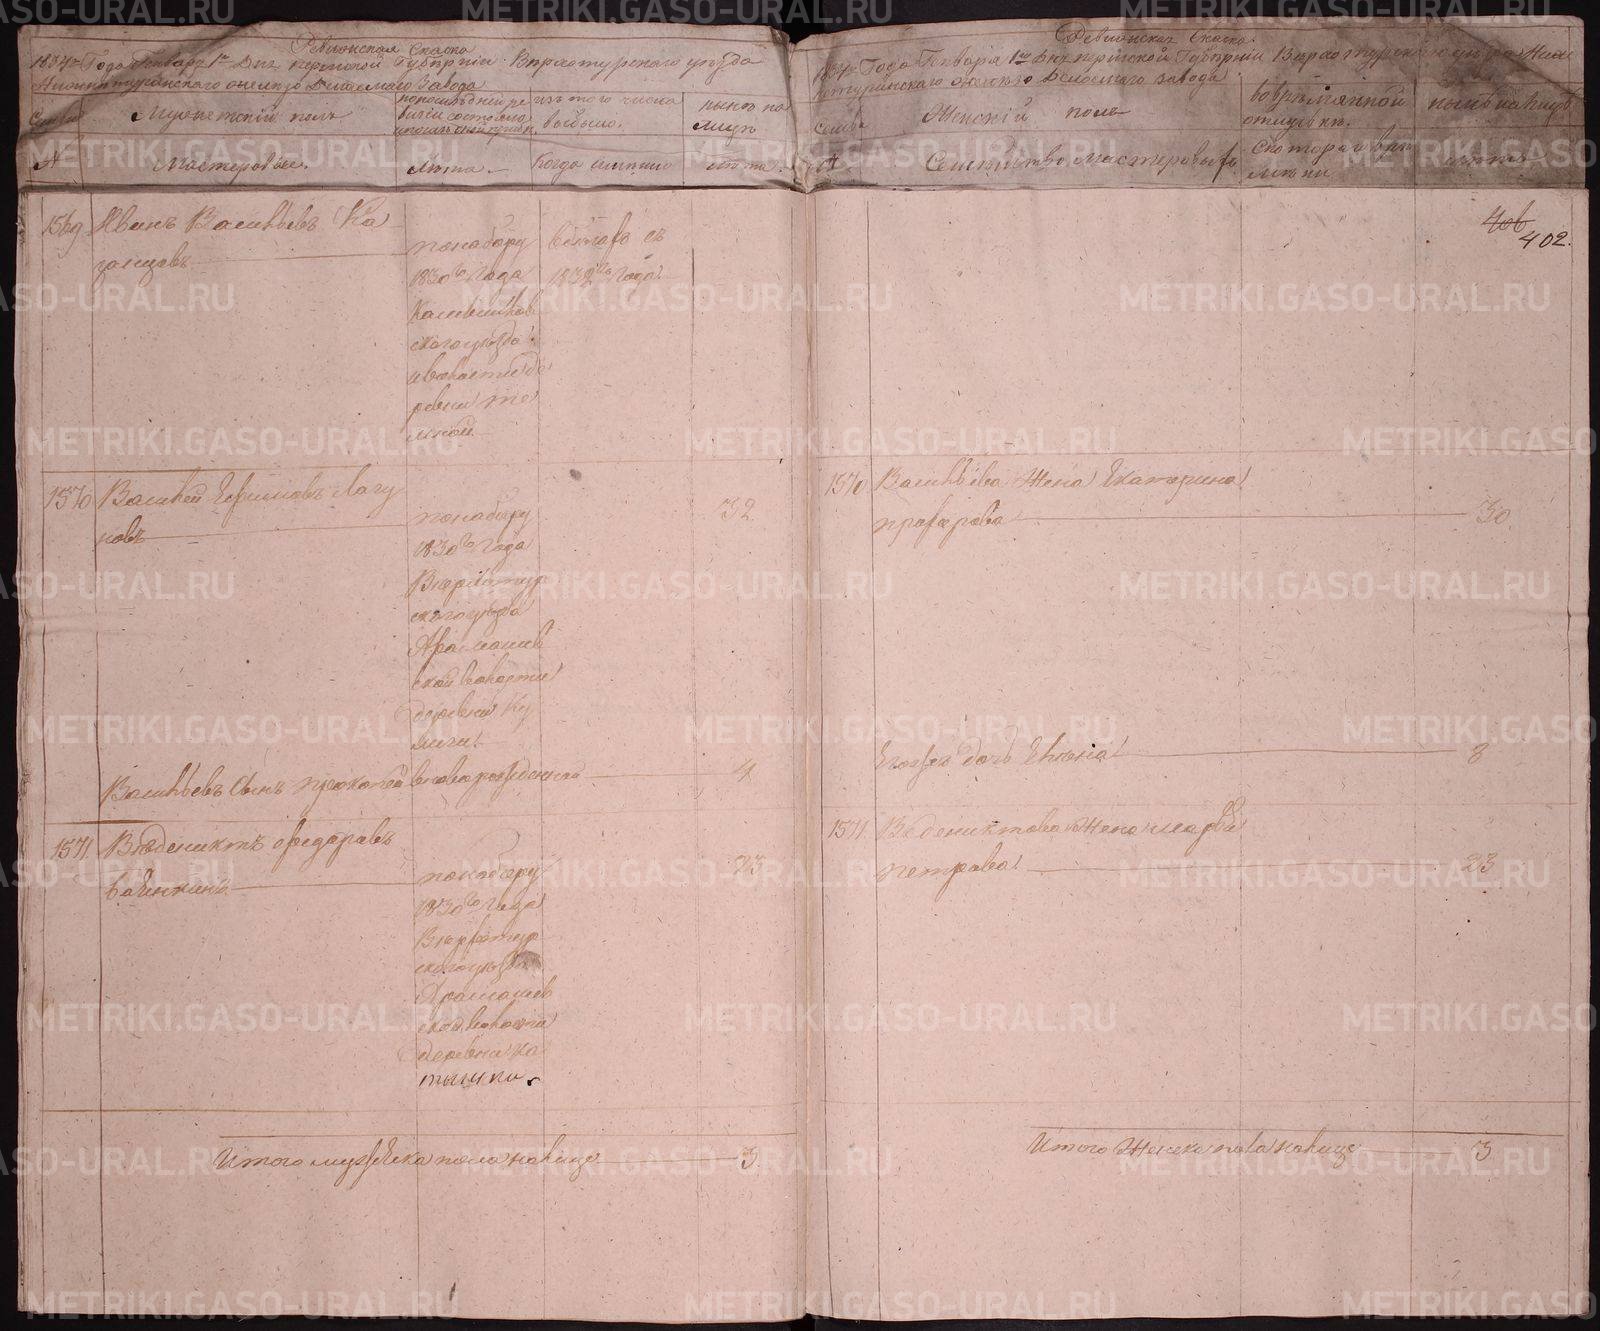 Ревизская Сказка
1834го Года Генваря 1го Дня Пермской Губернии Верхотурскаго уезда
Нижнетуринского
Завода
Семьи
Мужеский полъ
по последней ре
визии состояло
изъ того числа
выбыло.
ныне на
лицо
№
Мастеровые.
Лета.
Когда именно
лета.
1569 Иванъ Васильевъ Ка
занцовъ
по набору
1830го Года
Камышлов
скаго уезда
и волости де
ревни
бегахъ съ
1832го Года
1570 Василей Ефимовъ Лагу
новъ
по набору
1830го Года
Верхотур
скаго уезда
Арамашев
ской волости
деревни Ку
лиги
32
Васильевъ Сынъ Прокопей вновь рожденной 4
1571 Венедиктъ Федоравъ
по набору
1830го Года
Верхотур
скаго уезда
Арамашев
ской волости
деревни Ко
тышки.
23
Итого мужеска пола налицо 3
Ревизская Сказка
1834го Года Генваря 1го Дня Пермской Губернии Верхотурскаго уезда Ниж
нетуринского
завода
семьи
Женский полъ
во временной
отлучке.
ныне налицо
№
Семейство Мастеровыхъ
с котораго вре
мени
лета
406
402.
1570 Васильева Жена Катерина
30
дочь Елена 8
1571 Венедиктова Жена Марфа
Петрова 23
Итого Женска пола налицо 3
METRIKI.GASO-URAL.RU